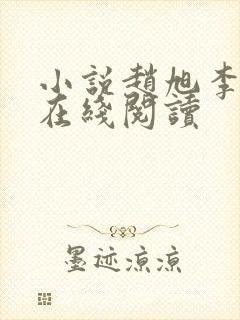 小説趙旭李
在綫閱讀
墨迹凉凉